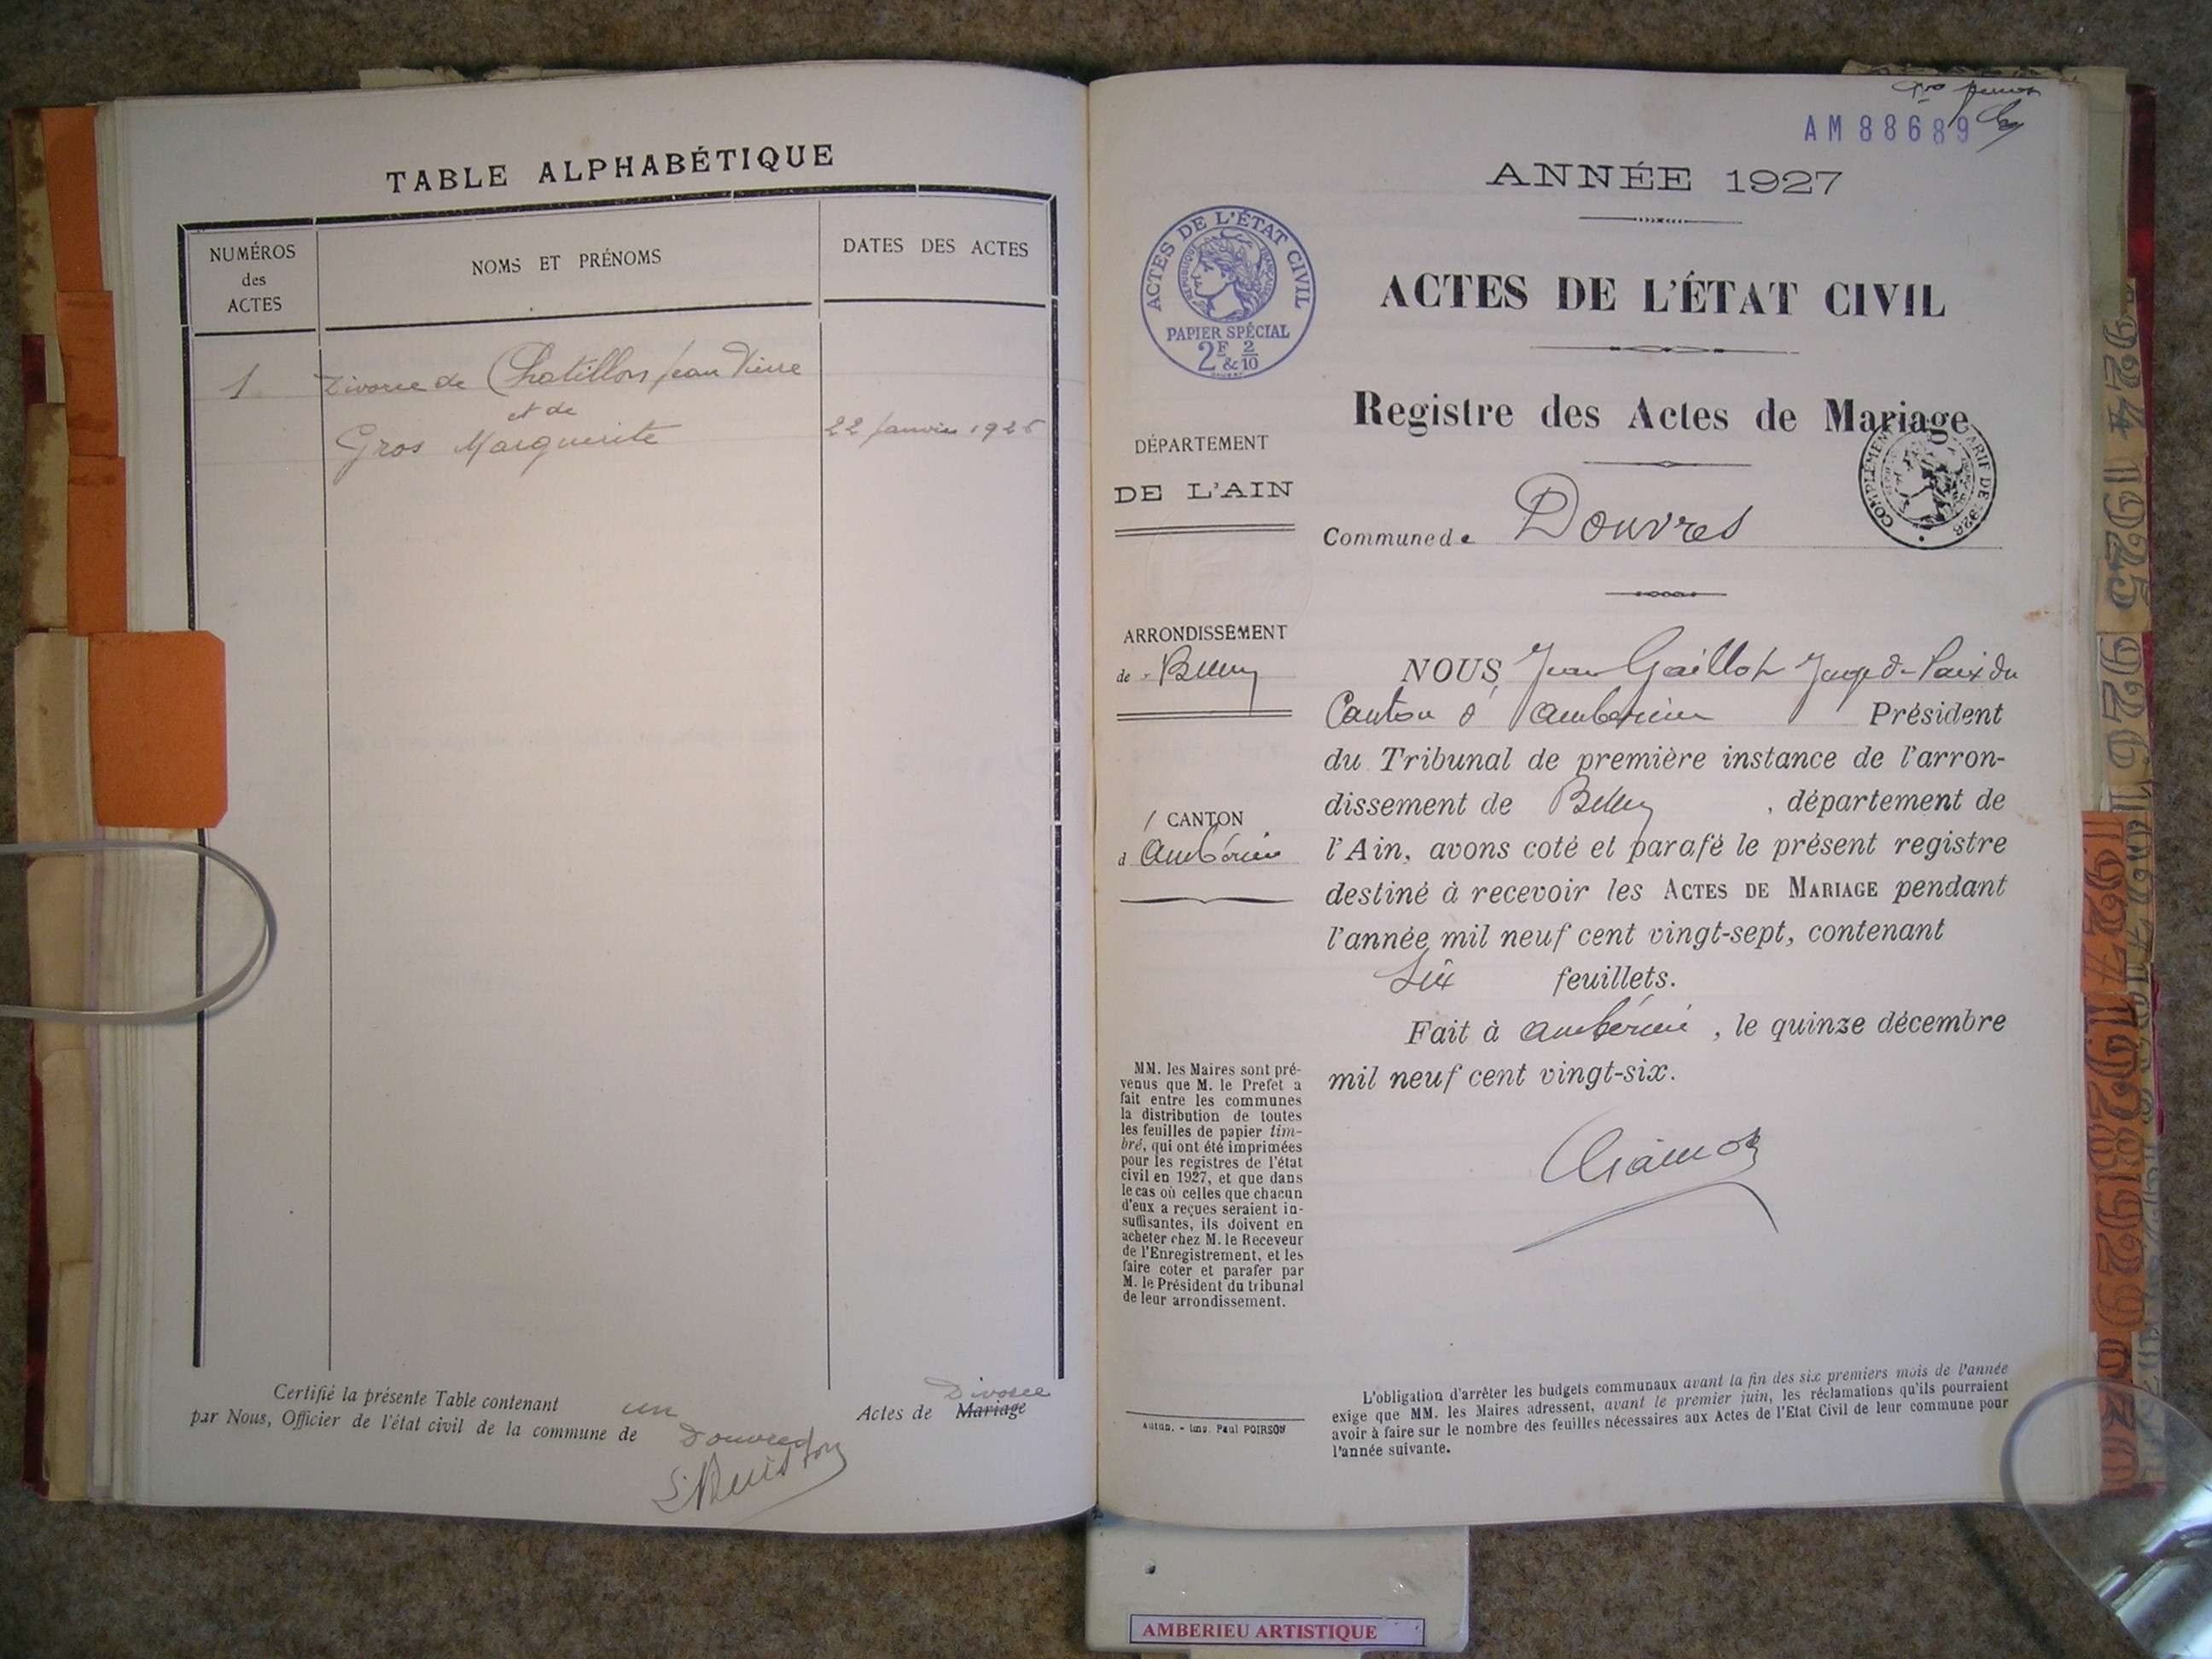 TABLE ALPHABÉTIQUE
NUMÉROS
des
ACTES
NOMS ET PRÉNOMS
DATES DES ACTES
1 Divorce de Chatillon Jean Pierre
et de
Gros Marguerite 22 Janvier 1926
Certifié la présente Table contenant un Actes de Mariage Divorce
par Nous, Officier de l'état civil de la commune de Douvres
AM 88689
ANNÉE 1927
ACTES DE L'ÉTAT CIVIL
RÉPUBLIQUE FRANÇAISE
PAPIER SPÉCIAL
2F & 2/10
ACTES DE L'ÉTAT CIVIL
Registre des Actes de Mariage
COMPLÉMENT TARIF DE 1926
DÉPARTEMENT
DE L'AIN
Commune de Douvres
ARRONDISSEMENT
de Belley
CANTON
d'Ambérieu
NOUS, Jean Gaillot Juge de Paix du
Canton d'Ambérieu Président
du Tribunal de première instance de l'arron-
dissement de Belley, département de
l'Ain, avons coté et parafé le présent registre
destiné à recevoir les ACTES DE MARIAGE pendant
l'année mil neuf cent vingt-sept, contenant
six feuillets.
Fait à Ambérieu, le quinze décembre
mil neuf cent vingt-six.
MM. les Maires sont pré-
venus que M. le Prefet a
fait entre les communes
la distribution de toutes
les feuilles de papier tim-
bré, qui ont été imprimées
pour les registres de l'état
civil en 1927, et que dans
le cas où celles que chacun
d'eux a reçues seraient in-
suffisantes, ils doivent en
acheter chez M. le Receveur
de l'Enregistrement, et les
faire coter et parafer par
M. le Président du tribunal
de leur arrondissement.
Autun. - Imp. Paul POIRSON
L'obligation d'arrêter les budgets communaux avant la fin des six premiers mois de l'année
exige que MM. les Maires adressent, avant le premier juin, les réclamations qu'ils pourraient
avoir à faire sur le nombre des feuilles nécessaires aux Actes de l'Etat Civil de leur commune pour
l'année suivante.
1924 1925 1926
1927 1928 1929
AMBERIEU ARTISTIQUE